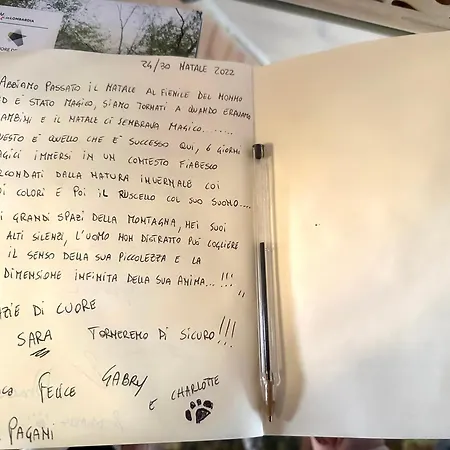 LOMBARDIA
24/30 NATALE 2022
ABBIAMO PASSATO IL NATALE AL FIENILE DEL NONNO
ED È STATO MAGICO, SIAMO TORNATI A QUANDO ERAVAMO
AMBINI E IL NATALE CI SEMBRAVA MAGICO.......
UESTO È QUELLO CHE È SUCCESSO QUI, 6 GIORNI
AGICI IMMERSI IN UN CONTESTO FIABESCO
RCONDATI DALLA NATURA INVERNALE COI
OI COLORI E POI IL RUSCELLO COL SUO SUONO....
I GRANDI SPAZI DELLA MONTAGNA, NEI SUOI
ALTI SILENZI, L'UOMO NON DISTRATTO PUÒ COGLIERE
IL SENSO DELLA SUA PICCOLEZZA E LA
DIMENSIONE INFINITA DELLA SUA ANIMA...!!!"
ZIE DI CUORE
SARA TORNEREMO DI SICURO!!!
CO FELICE GABRY E CHARLOTTE
PAGANI